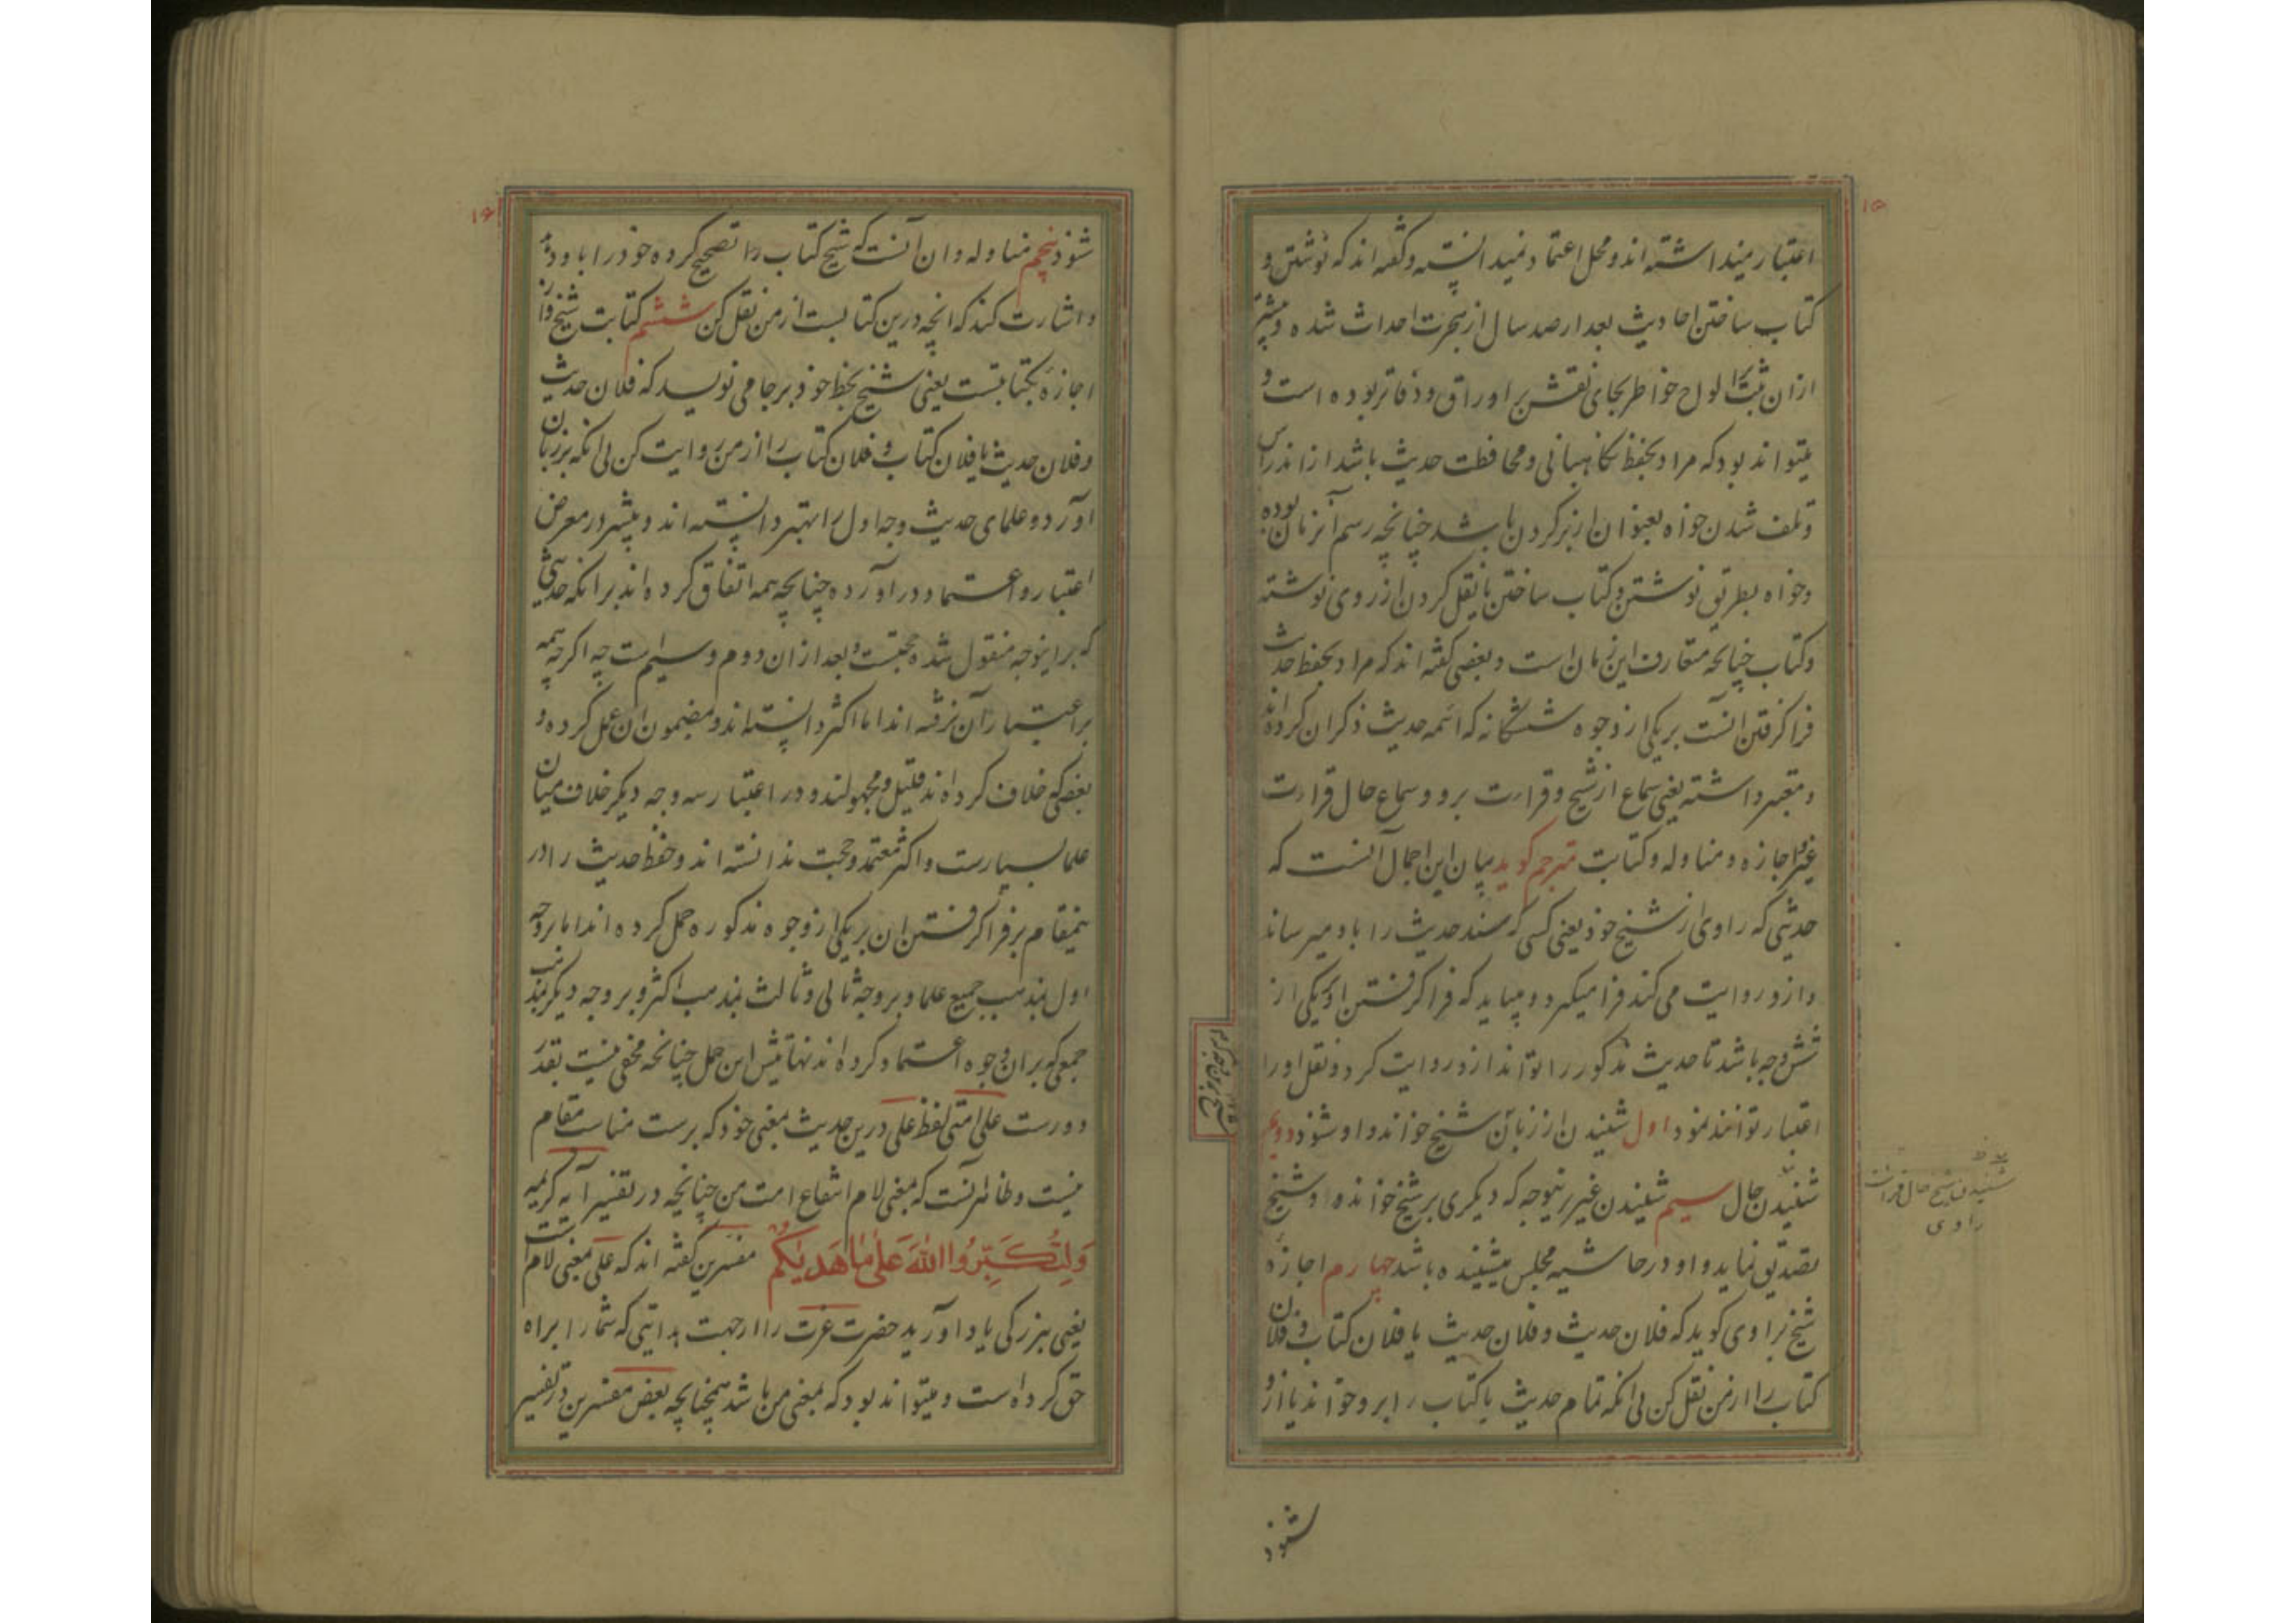 ۱۵
اعتبار مینداشته اند و محل اعتماد نمیدانسته و گفته اند که نوشتن و
کتاب ساختن احادیث بعد از صد سال از هجرت احداث شده و پیشتر
ازان ثبت بر الواح خواطر بجای نقش بر اوراق و دفاتر بوده است و
میتواند بود که مراد بحفظ نکاهبانی و محافظت حدیث باشد از اندراس
و تلف شدن خواه بعنوان از بر کردن باشد چنانچه رسم آنزمان بوده
و خواه بطریق نوشتن و کتاب ساختن یا نقل کردن از روی نوشته
و کتاب چنانچه متعارف این زمان است و بعضی گفته اند که مراد بحفظ حدیث
فرا کرفتن انست بر یکی از وجوه ششکانه که ائمه حدیث ذکر ان کرده اند
و معتبر داشته یعنی سماع از شیخ و قراءت برو و سماع حال قراءت
غیر و اجازه و مناوله و کتابت مترجم کوید بیان این اجمال آنست که
حدیثی که راوی از شیخ خود یعنی کسی که سند حدیث را باو میرساند
و ازو روایت می کند فرا میکیرد و میباید که فرا کرفتن او بیکی از
شش وجه باشد تا حدیث مذکور را تواند ازو روایت کرد و نقل او را
اعتبار توانند نمود اول شنیدن از زبان شیخ خواند و او شنود دویم
شنیدن حال سیم شنیدن غیر بر نیوجه که دیکری بر شیخ خوانده و شیخ
تصدیق نماید و او در حاشیه مجلس شنیده باشد چهارم اجازه
شیخ براوی کوید که فلان حدیث و فلان حدیث یا فلان کتاب و فلان
کتاب را از من نقل کن بی انکه تمام حدیث یا کتاب را برو خواند یا ازو
شنیدن شیخ حال قراءت
راوی
شنود
۱۶
شنود پنجم مناوله و ان آنست که شیخ کتاب را تصحیح کرده خود را باو دهد
و اشارت کند که انچه درین کتابست از من نقل کن ششم کتابت شیخ و ان
اجازه بکتابتست یعنی شیخ بخط خود بر جا می نویسد که فلان حدیث
و فلان حدیث یا فلان کتاب و فلان کتاب را از من روایت کن بی انکه بر زبان
اورد و علمای حدیث وجه اول را بهتر دانسته اند و بیشتر در معرض
اعتبار و اعتماد در اورده چنانچه همه اتفاق کرده اند بر انکه حدیثی
که بر اینوجه منقول شده حجتست و بعد از ان دوم و سیم است چه اکر چه همه
بر اعتبار آن نرفته اند اما اکثر دانسته اند و بمضمون ان عمل کرده و
بعضی که خلاف کرده اند قلیل و مجهولند و در اعتبار سه وجه دیکر خلاف میان
علما بسیارست و اکثر معتمد و حجت ندانسته اند و حفظ حدیث را در
ینمقام بر فرا کرفتن ان بر یکی از وجوه مذکوره حمل کرده اند اما بر وجه
اول بمذهب جمیع علما و بر وجه ثانی و ثالث بمذهب اکثر و بر وجه دیکر بمذهب
جمعی که بر ان وجوه اعتماد کرده اند نهایتش این حمل چنانچه مخفی نیست بقدر
دورست علی امتی لفظ علی درین حدیث بمعنی خود که برست مناسب مقام
نیست و ظاهر آنست که بمعنی لام انتفاع امت من چنانچه در تفسیر آیه کریمه
وَلِتُكَبِّرُوا اللّٰهَ عَلىٰ مَا هَدٰيكُم مفسرین گفته اند که علی بمعنی لام است
یعنی ببزرکی یاد اورید حضرت عزت را از جهت هدایتی که شما را براه
حق کرده است و میتواند بود که بمعنی من باشد همچنانچه بعض مفسرین در تفسیر